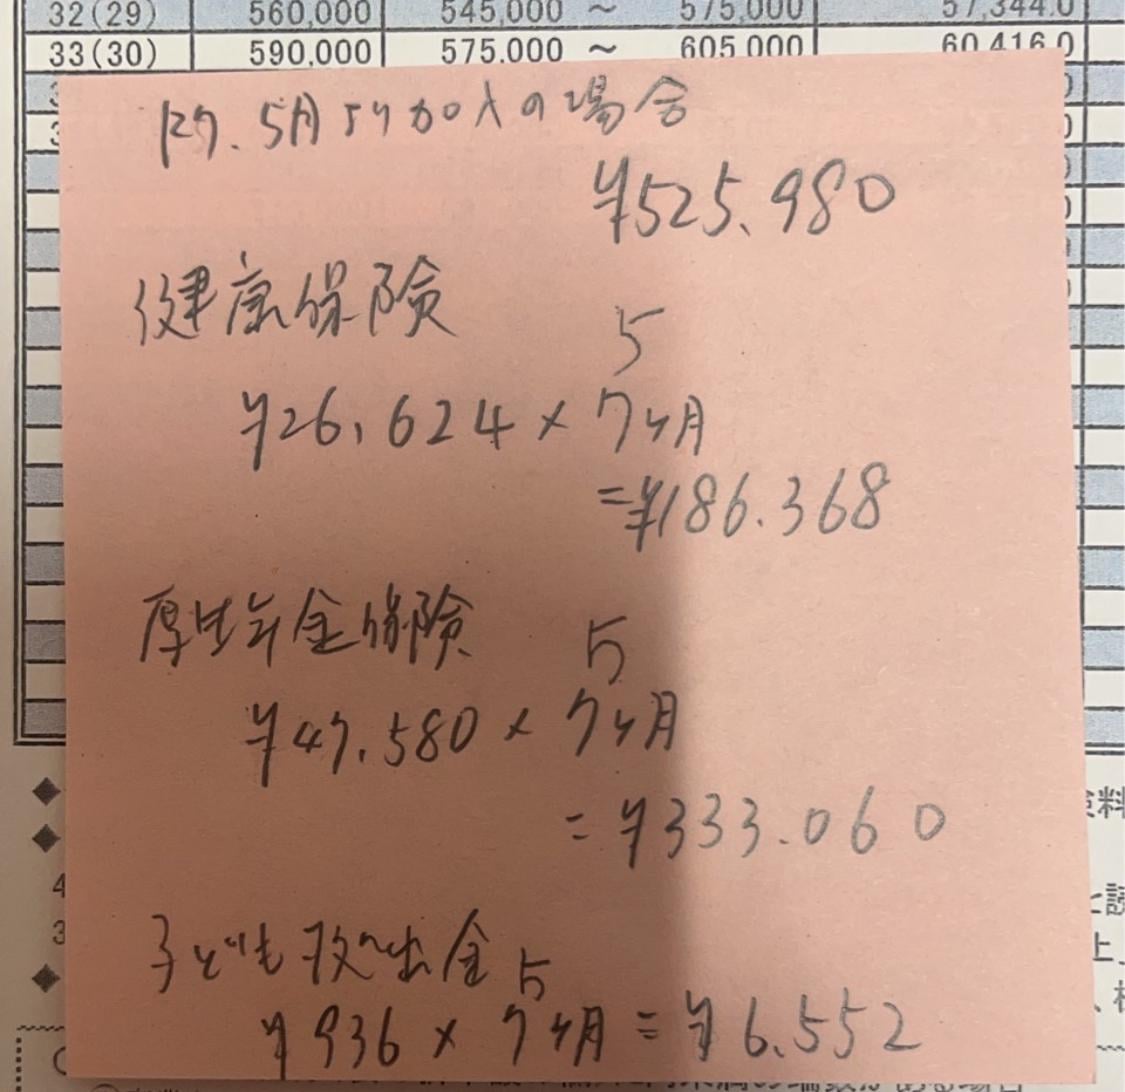 32(29) 560,000 545,000 ~ 575,000 57,344.0
33(30) 590,000 575,000 ~ 605,000 60,416.0
H29.5月より加入の場合
¥525.980
健康保険
5
¥26,624×7ヶ月
=¥186.368
厚生年金保険
5
¥47.580×7ヶ月
=¥333.060
子ども拠出金
5
¥936×7ヶ月=¥6.552